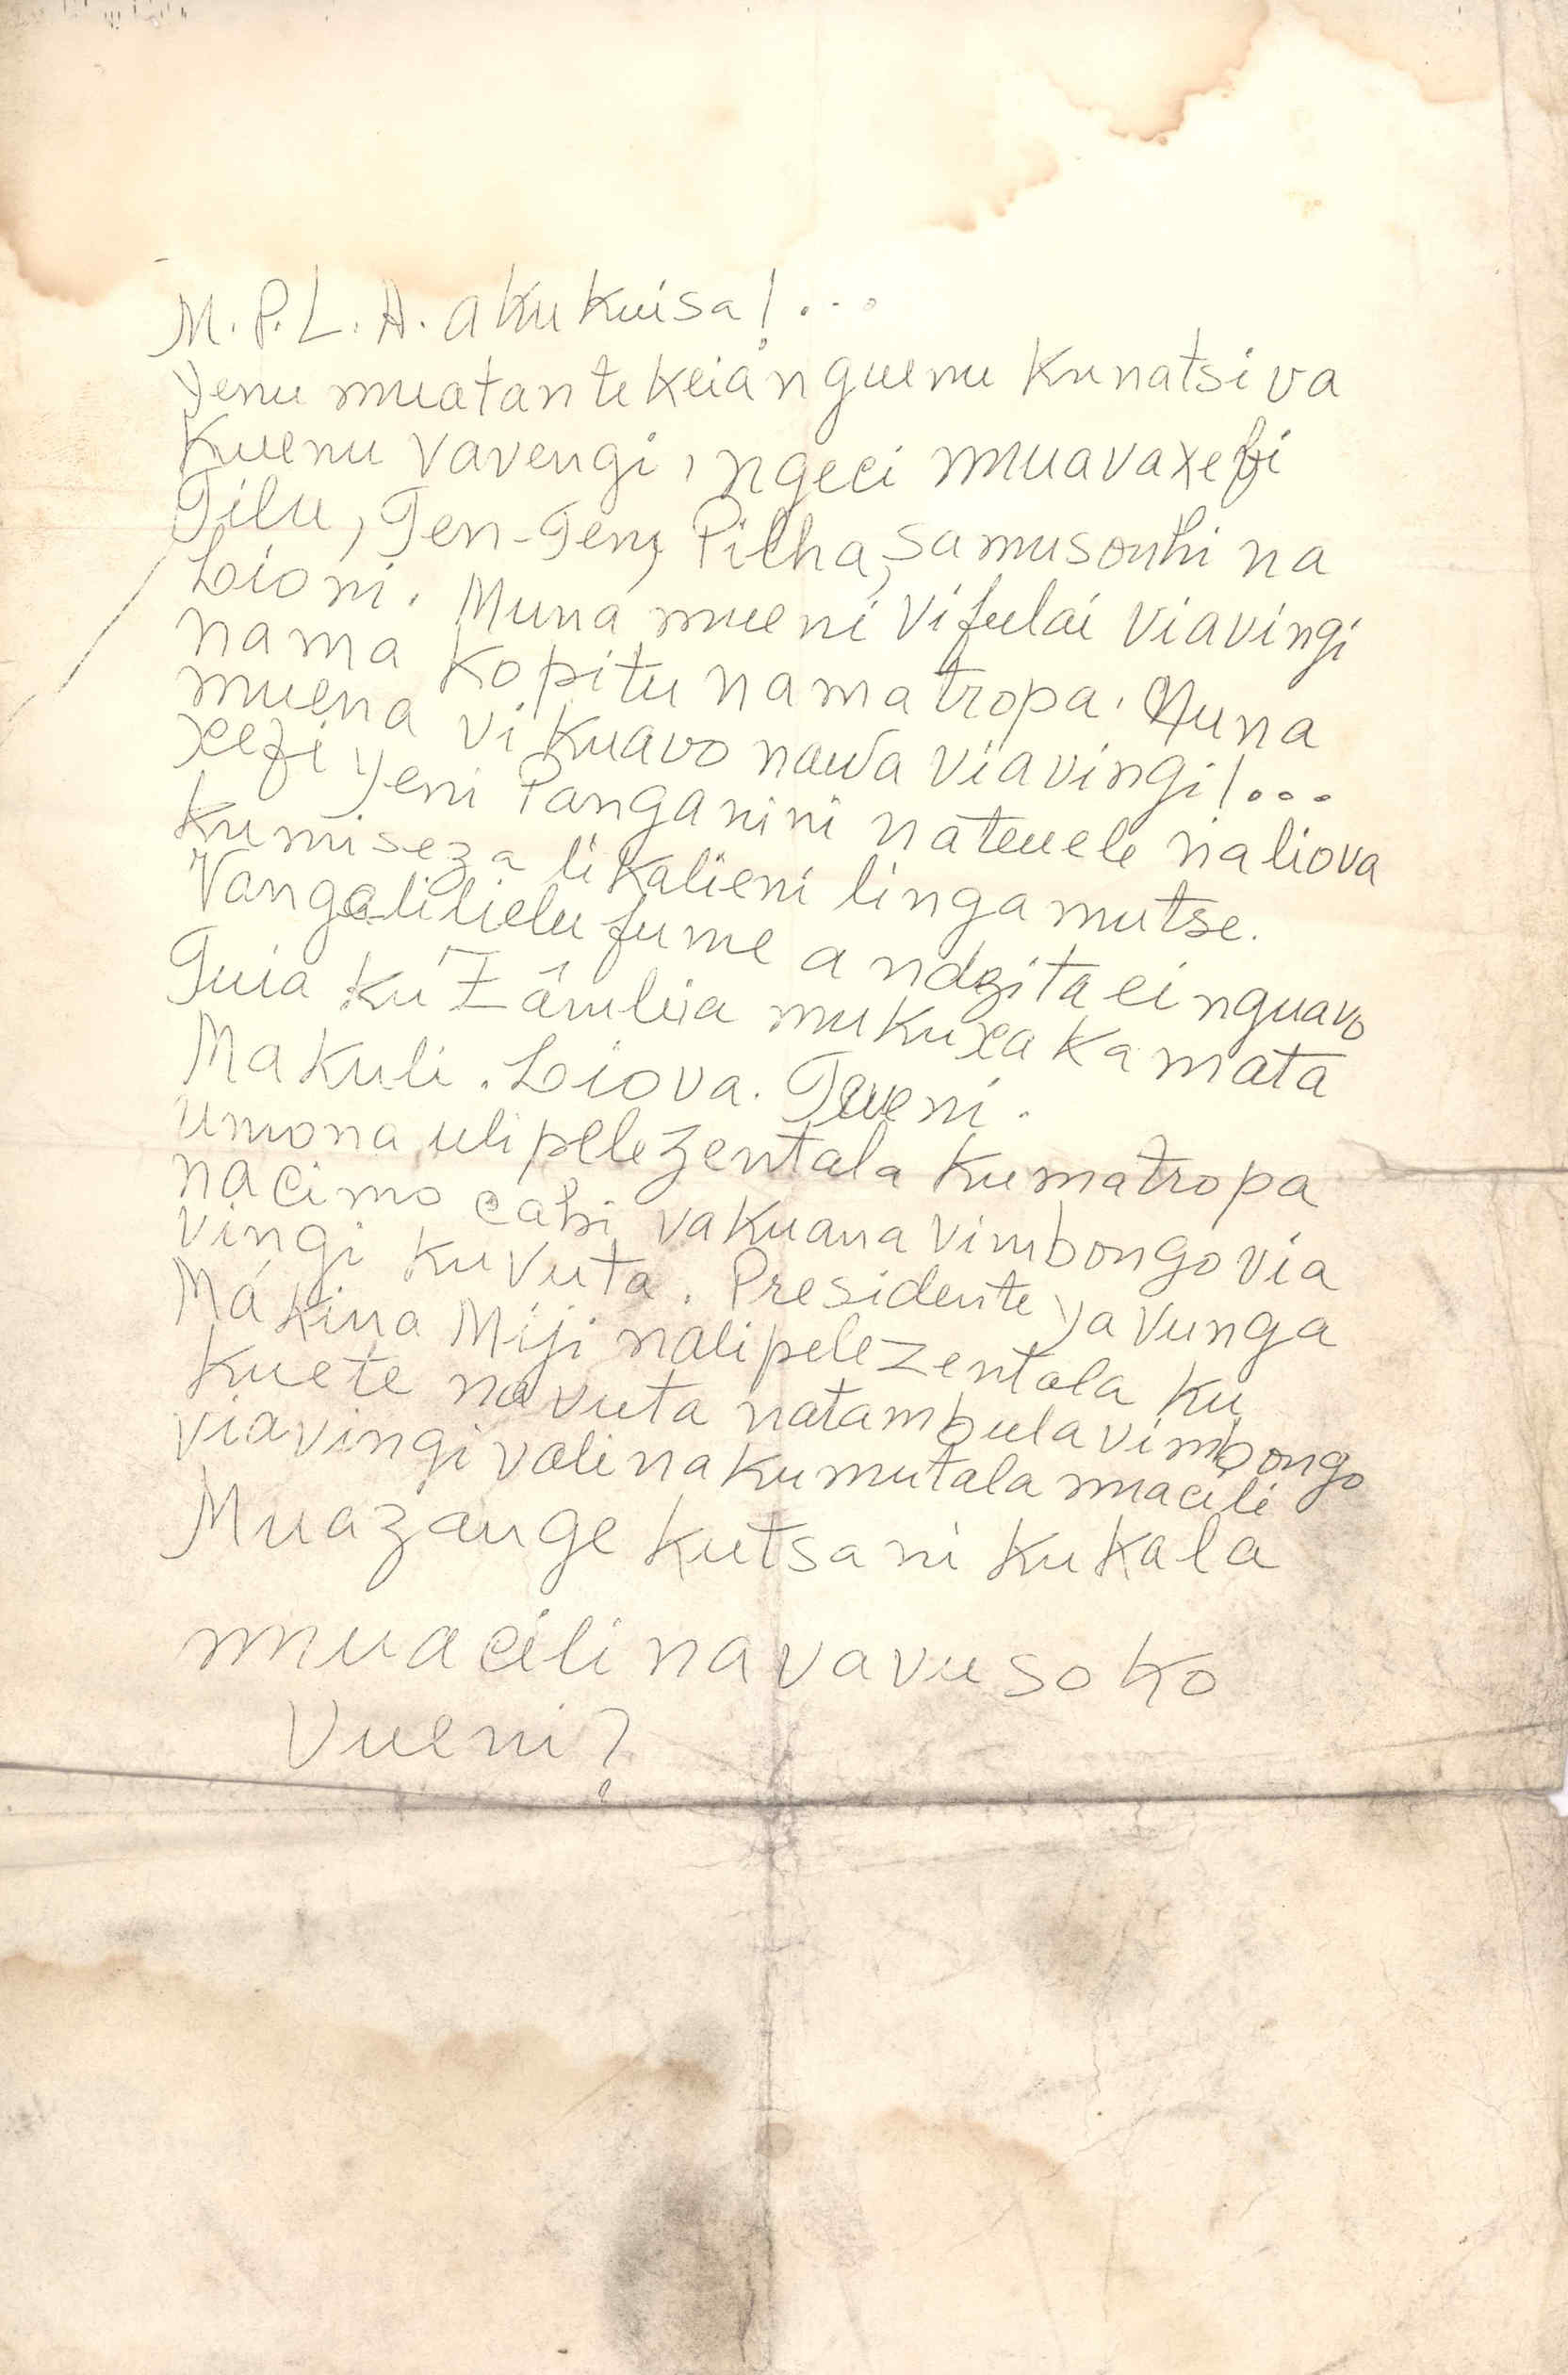 M.P.L.A. akukuisa!...
Yenu muatantekeia nguenu kunatsi va
Kuenu vavengi, ngeci muavaxefi
Tilu, Ten-Ten, Pilha, Samusonhi na
Lioni. Muna mueni vifulai viavingi
nama kopitu namatropa. Muna
muena vikuavo nawa viavingi!...
xefi yeni Panganini nateuele naliova
kumiseza likalieni lingamutse.
Vangalilielu fume a ndzita cinguavo
Tuia ku Zâmbia mukuxakamata
Makuli. Liova. Tueni.
umona ulipelezentala kumatropa
nacimo cahi vakuana vimbongo via
vingi kuvuta. Presidente ya vunga
Mákina Miji nalipelezentala ku
kuete navuta natambula vimbongo
viavingi valinakumutala muacili
Muazange kutsani kukala
muacili navavusoko
vueni?